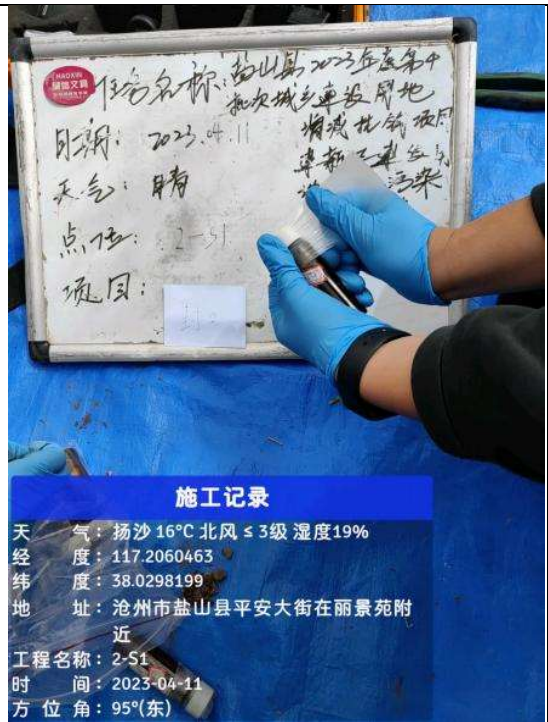 HAOXIN
任务名称:盐山县2023年度第4
批次城乡建设用地
增减挂钩项目
日期: 2023.04.11
天气: 晴
污染
点位: 2-S1
项目:
施工记录
天 气:扬沙 16°C 北风 ≤ 3级 湿度19%
经 度:117.2060463
纬 度:38.0298199
地 址:沧州市盐山县平安大街在丽景苑附
近
工程名称:2-S1
时 间:2023-04-11
方 位 角:95°(东)